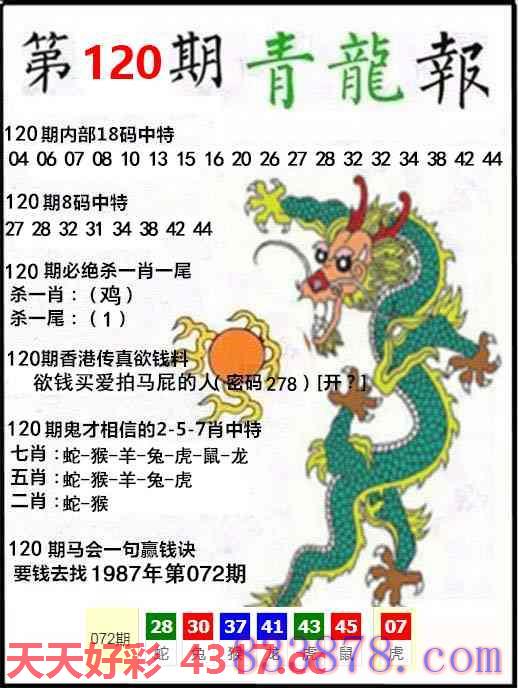 第120期青龍報
120期内部18码中特
04 06 07 08 10 13 15 16 20 26 27 28 32 32 34 38 42 44
120期8码中特
27 28 32 31 34 38 42 44
120期必绝杀一肖一尾
杀一肖：（鸡）
杀一尾：（1）
120期香港传真欲钱料
欲钱买爱拍马屁的人（密码278）[开？]
120期鬼才相信的2-5-7肖中特
七肖：蛇-猴-羊-兔-虎-鼠-龙
五肖：蛇-猴-羊-兔-虎
二肖：蛇-猴
120期马会一句赢钱诀
要钱去找1987年第072期
072期 28 30 37 41 43 45 07
蛇 兔 猴 龙 虎 鼠 虎
天天好彩
878.com